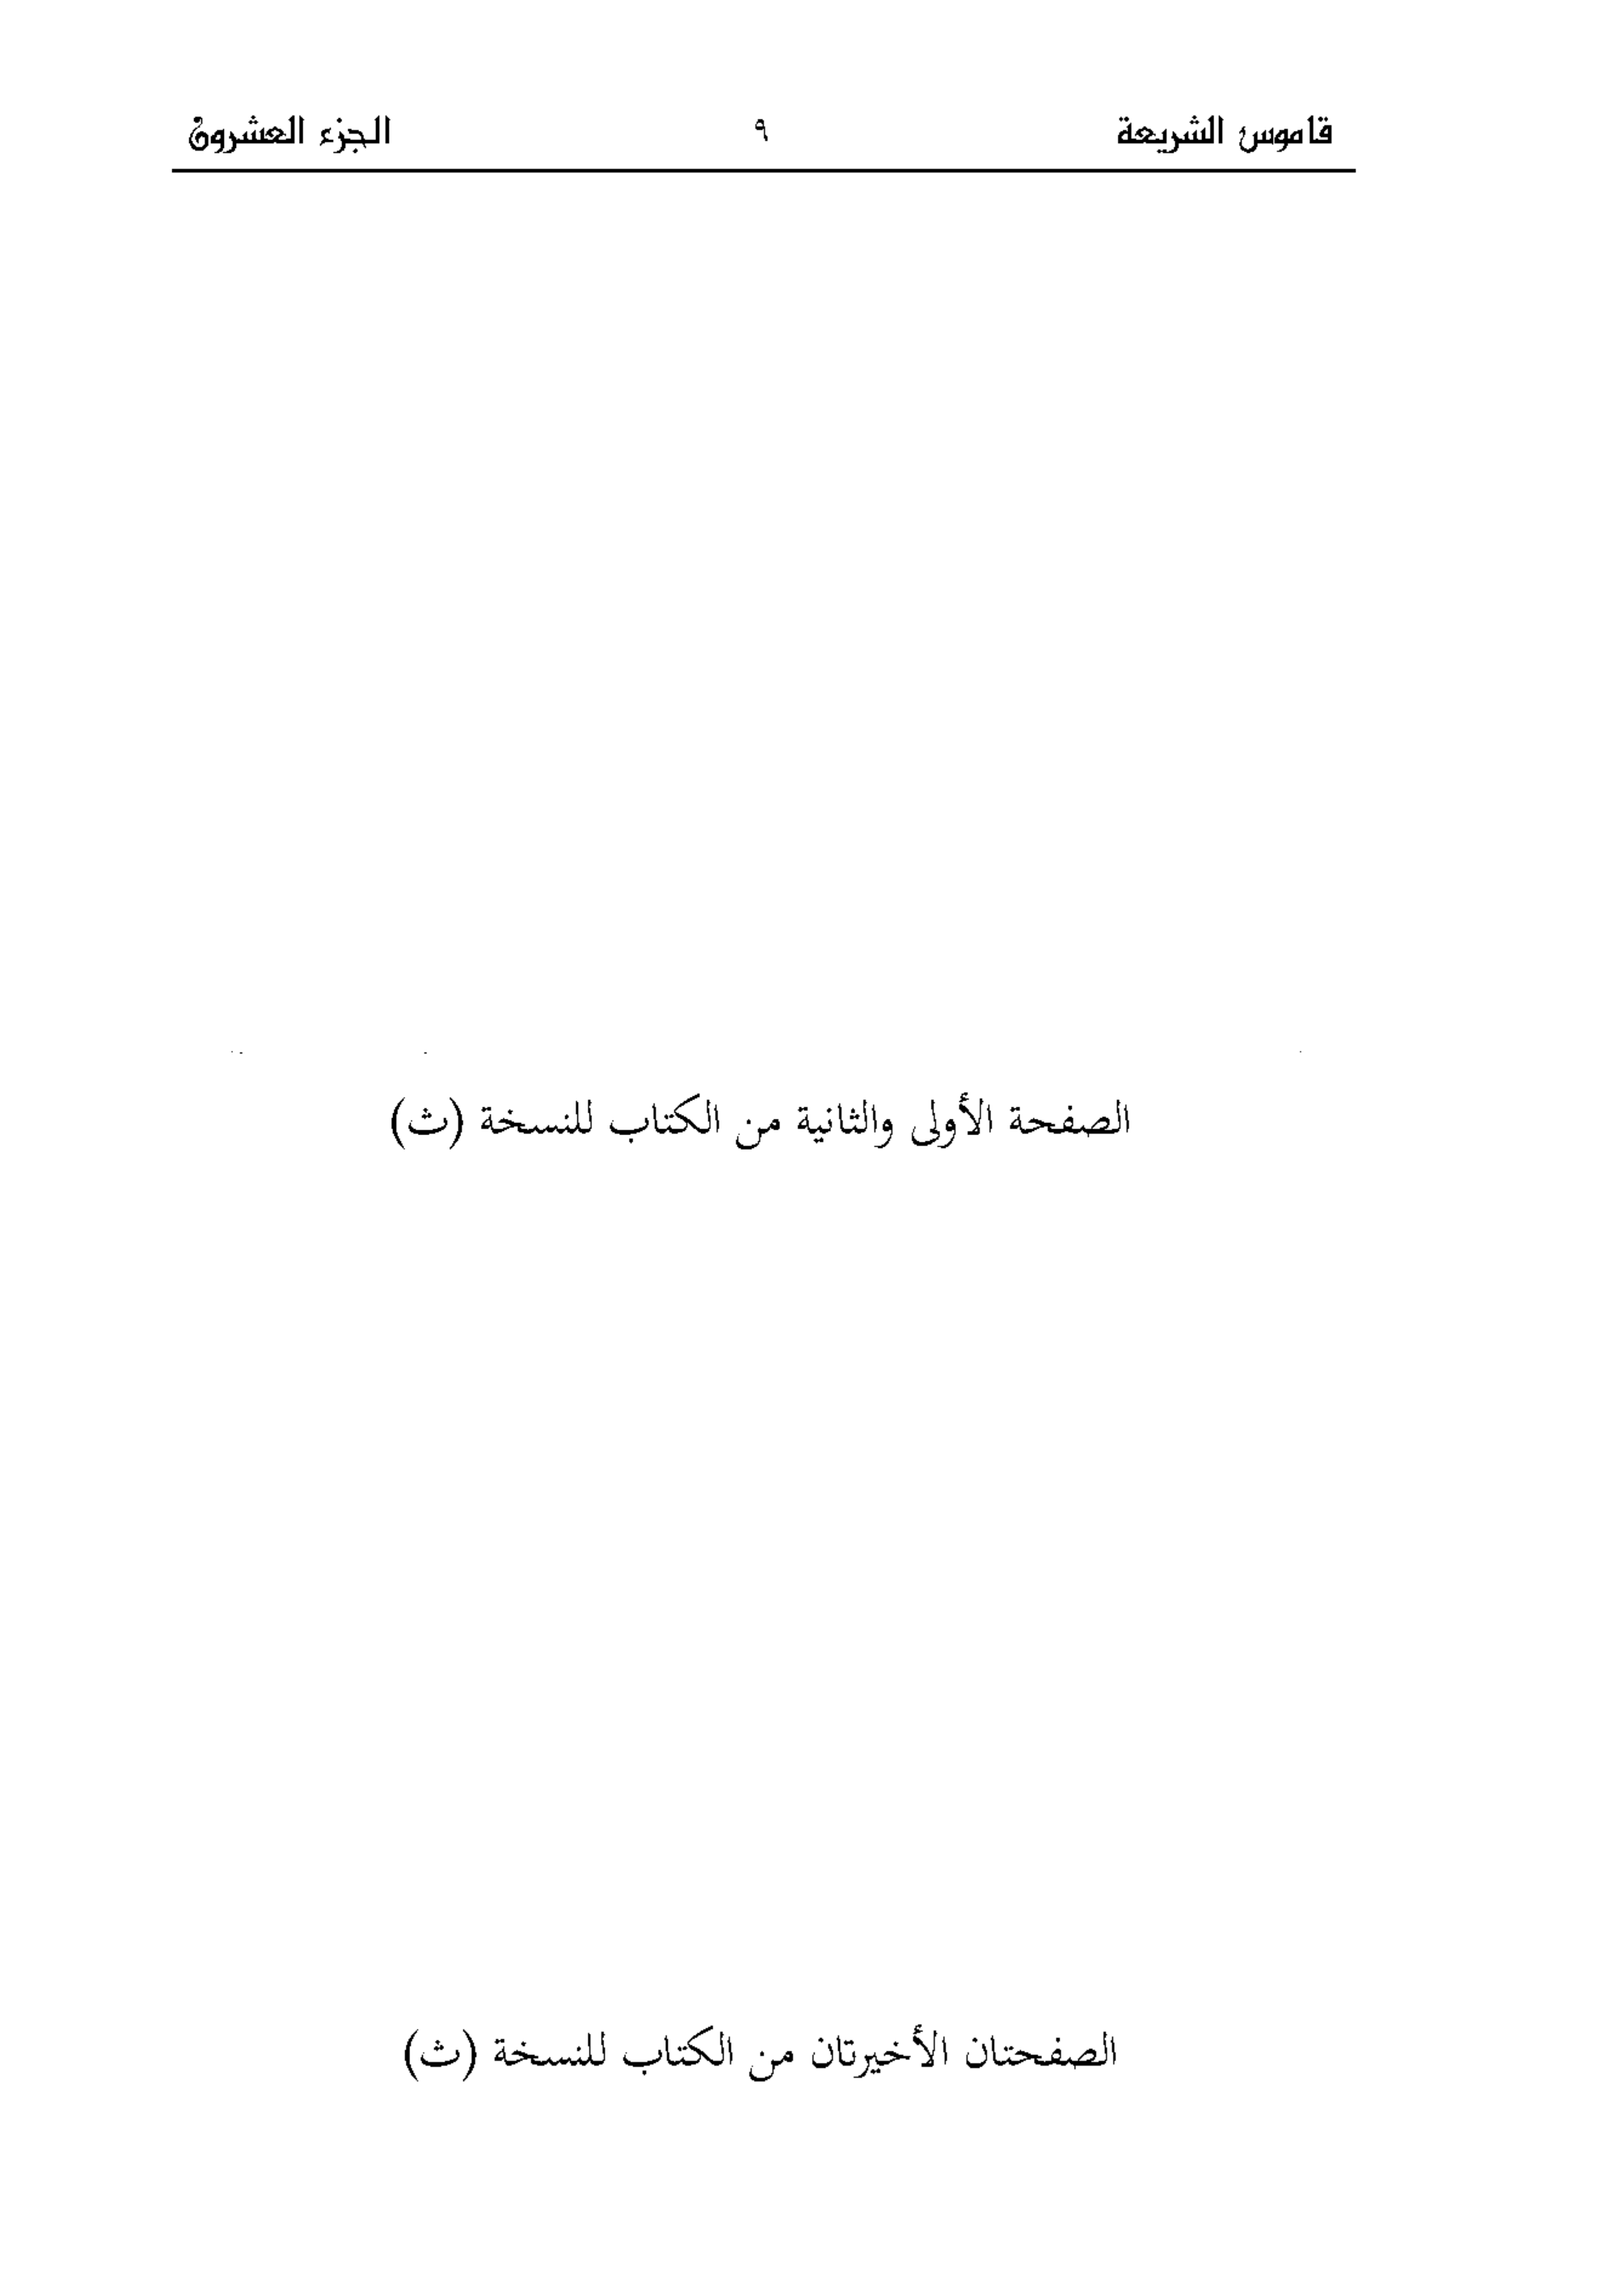 قاموس الشريعة ٩ الجزء العشرون
الصفحة الأولى والثانية من الكتاب للنسخة (ث)
الصفحتان الأخيرتان من الكتاب للنسخة (ث)